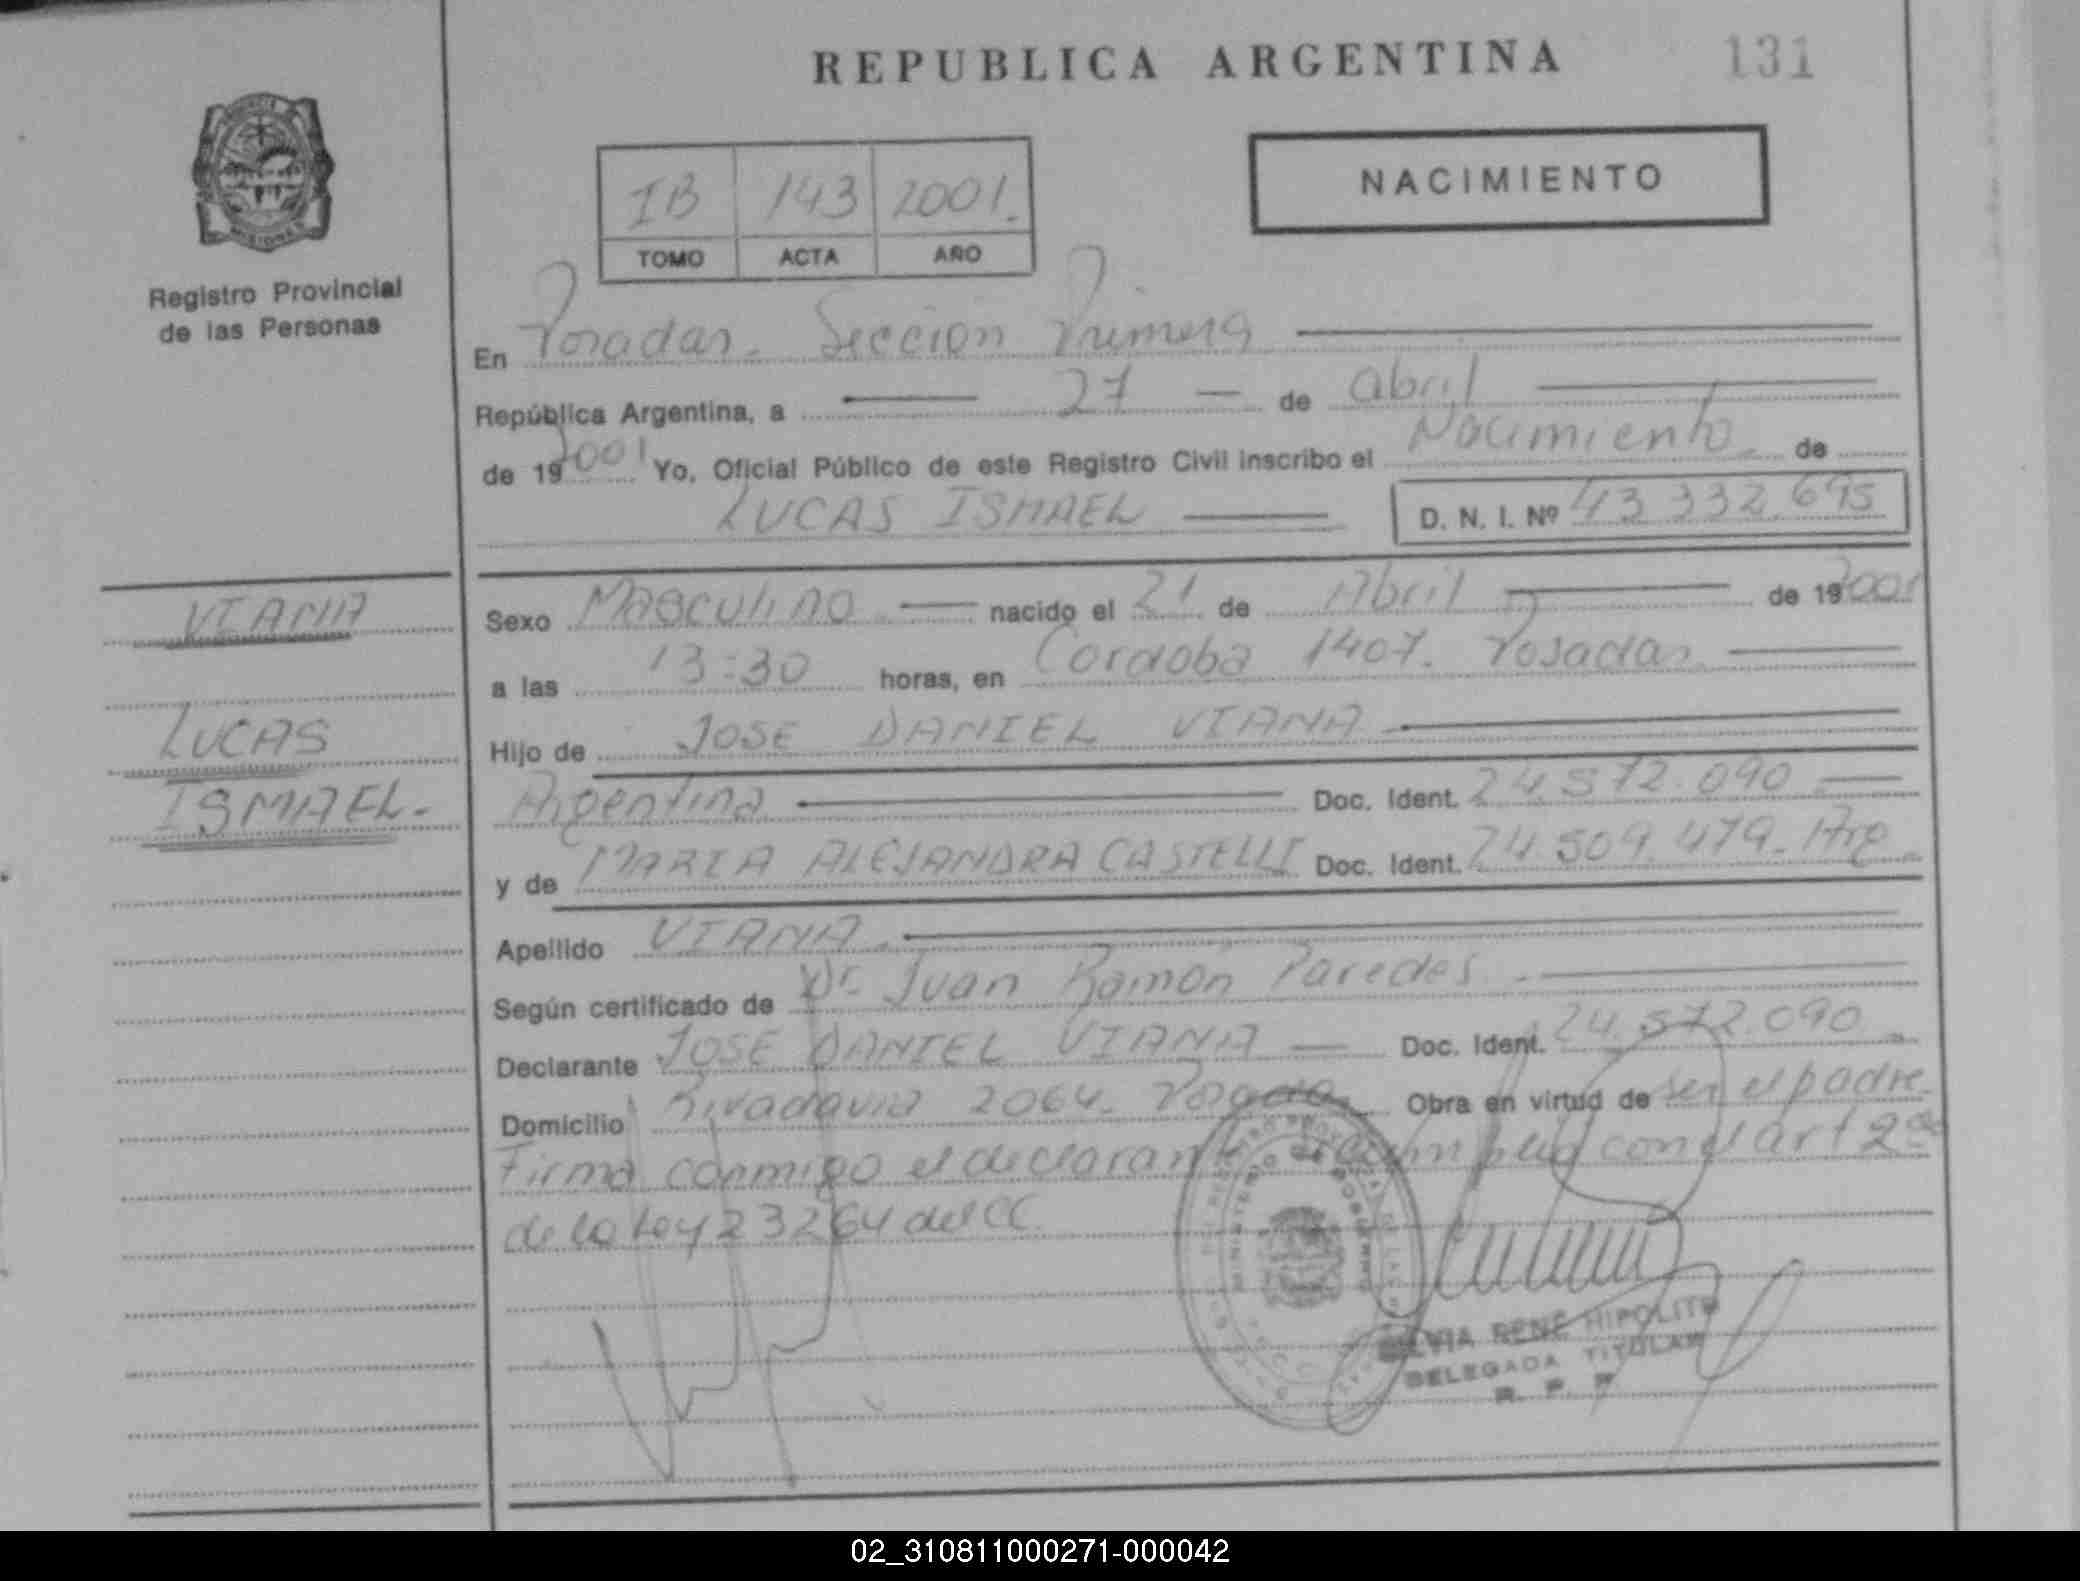 REPUBLICA ARGENTINA
131
PROVINCIA
MISIONES
Registro Provincial
de las Personas
IB 143 2001.
TOMO ACTA AÑO
NACIMIENTO
En Posadas. Seccion Primera
República Argentina, a 27 de abril
de 19 2001 Yo, Oficial Público de este Registro Civil inscribo el Nacimiento de
LUCAS ISMAEL D. N. I. Nº 43 332.695
VIANA
LUCAS
ISMAEL.
Sexo Masculino. nacido el 21 de Abril de 19 2001
a las 13:30 horas, en Cordoba 1407. Posadas
Hijo de JOSE DANIEL VIANA
Argentina Doc. Ident. 24.572.090
y de MARIA ALEJANDRA CASTELLI Doc. Ident. 24 509.479. Arg.
Apellido VIANA.
Según certificado de Dr. Juan Ramón Paredes.
Declarante JOSE DANIEL VIANA Doc. Ident. 24.572.090
Domicilio Rivadavia 2064. Posadas. Obra en virtud de ser el padre.
Firma conmigo el declarante con el art 2do
de la Ley 23264 del CC.
MINISTERIO DE GOBIERNO
SILVIA RENE HIPOLITO
DELEGADA TITULAR
R. P. P.
02_310811000271-000042